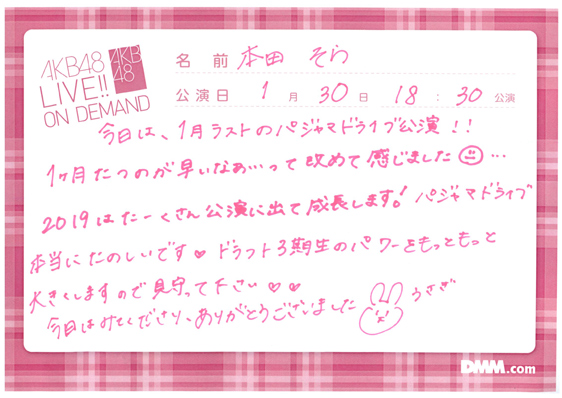 AKB48
LIVE!!
ON DEMAND
AKB
48
名前 本田 そら
公演日 1月30日 18:30公演
今日は、1月ラストのパジャマドライブ公演!!
1ヶ月たつのが早いなぁ…って改めて感じました…
2019はたーくさん公演に出て成長します! パジャマドライブ
本当にたのしいです♥ ドラフト3期生のパワーをもっともっと
大きくしますので見守って下さい♥♥
今日はみてくださり、ありがとうございました うさぎ
DMM.com